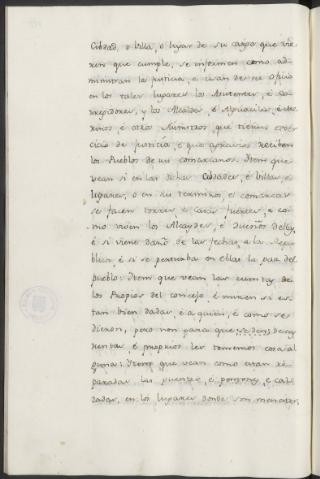 Cibdad, o billa, o lugar de su cargo que vie
ren que cumple, se informen como ad-
ministran la justicia, e usan de su oficio
en los tales lugares los Asistentes, é Co-
rregidores, y los Alcaldes, é Alguaciles, é Me-
rinos, é otros Ministros que tienen exer-
cicio de justicia, é que agravios reciben
los Pueblos de sus comarcanos. Item que
vean si en las dichas Cibdades, é billas, é
lugares, o en sus terminos, e comarcas
se facen torres, e casas fuertes, e co-
mo viven los Alcaydes, é Dueños dellas,
é si viene daño de las fechas, a la Repu
blica, é si se perturba en ellas la paz del
pueblo: Item que vean las cuentas de
los Propios del concejo, é miren si es-
tan bien dadas, é a quien, é como se
dieron, pero non para que
é propios ler tomemos cosa al
guna: Item que vean como estan re
paradas las puentes, é pontones, e cal-
zadas, en los lugares donde son menester,